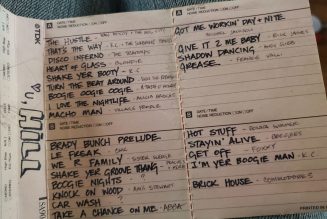 TDK
A DATE/TIME
NOISE REDUCTION □ON □OFF
THE HUSTLE - VAN MCCOY &
THAT'S THE WAY - K.C. + THE SUNSHINE
DISCO INFERNO - THE TRAMMPS
HEART OF GLASS - BLONDIE
SHAKE YER BOOTY - K.C.
TURN THE BEAT AROUND -
BOOGIE OOGIE OOGIE
I LOVE THE NIGHTLIFE - ALICIA BRIDGES
MACHO MAN - VILLAGE PEOPLE
DATE/TIME
NOISE REDUCTION □ON □OFF
BRADY BUNCH PRELUDE
LE FREAK - CHIC
WE R FAMILY - SISTER SLEDGE
SHAKE YER GROOVE THANG - PEACHES
BOOGIE NIGHTS
KNOCK ON WOOD - AMII STEWART
CAR WASH
TAKE A CHANCE ON ME - ABBA
B DATE/TIME
NOISE REDUCTION □ON □OFF
GOT ME WORKIN' DAY + NITE
MICHAEL JACKSON
GIVE IT 2 ME BABY - RICK JAMES
SHADOW DANCING - ANDY GIBB
GREASE - FRANKIE VALLI
DATE/TIME
NOISE REDUCTION □ON □OFF
HOT STUFF - DONNA SUMMER
STAYIN' ALIVE - BEE GEES
GET OFF - FOXY
I'M YER BOOGIE MAN - K.C.
BRICK HOUSE - COMMODORES
PRINTED IN